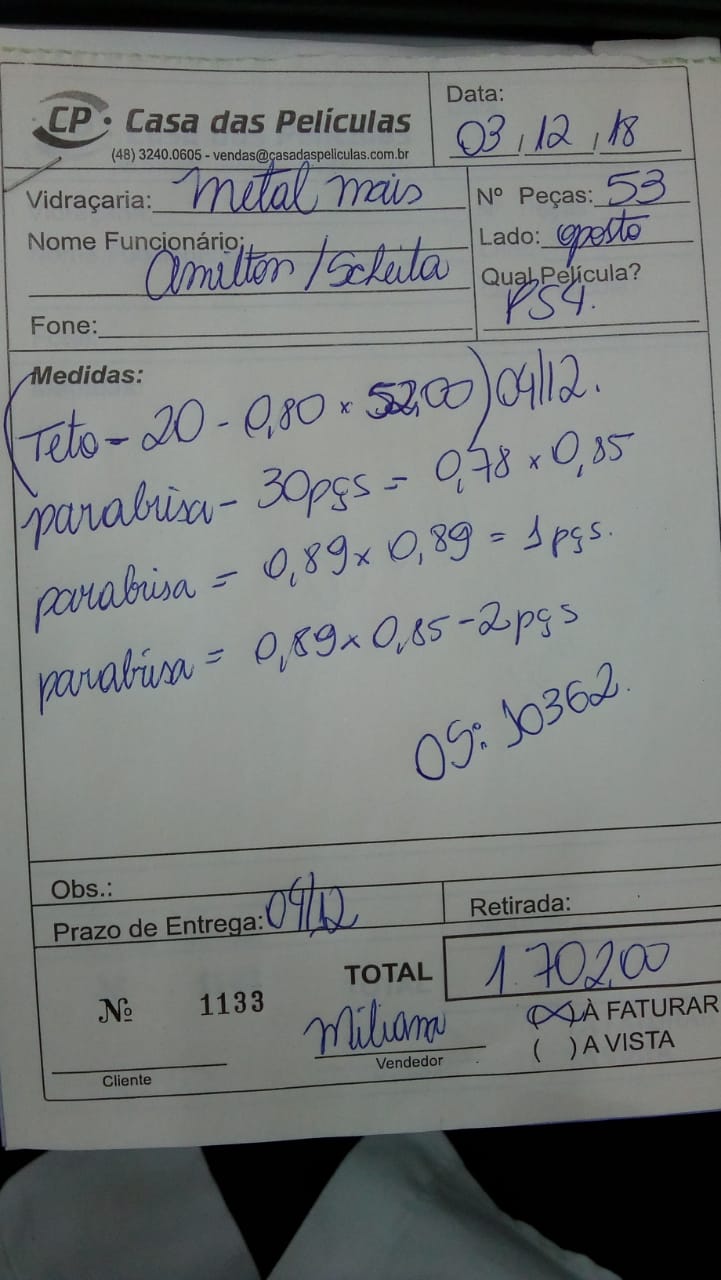 CP. Casa das Películas
(48) 3240.0605 - vendas@casadaspeliculas.com.br
Data:
03 / 12 / 18
Vidraçaria: Metal mais
Nº Peças: 53
Nome Funcionário:
Amilton / Scheila
Lado: oposto
Qual Película?
PS4.
Fone:
Medidas:
(Teto - 20 - 0,80 x 52,00) 04/12.
parabrisa - 30pçs = 0,78 x 0,85
parabrisa = 0,89 x 0,89 = 1 pçs.
parabrisa = 0,89 x 0,85 - 2 pçs
OS: 10362.
Obs.:
Prazo de Entrega: 04/12
Retirada:
TOTAL 1.702,00
Nº 1133
Miliana
(X) À FATURAR
( ) A VISTA
Cliente
Vendedor